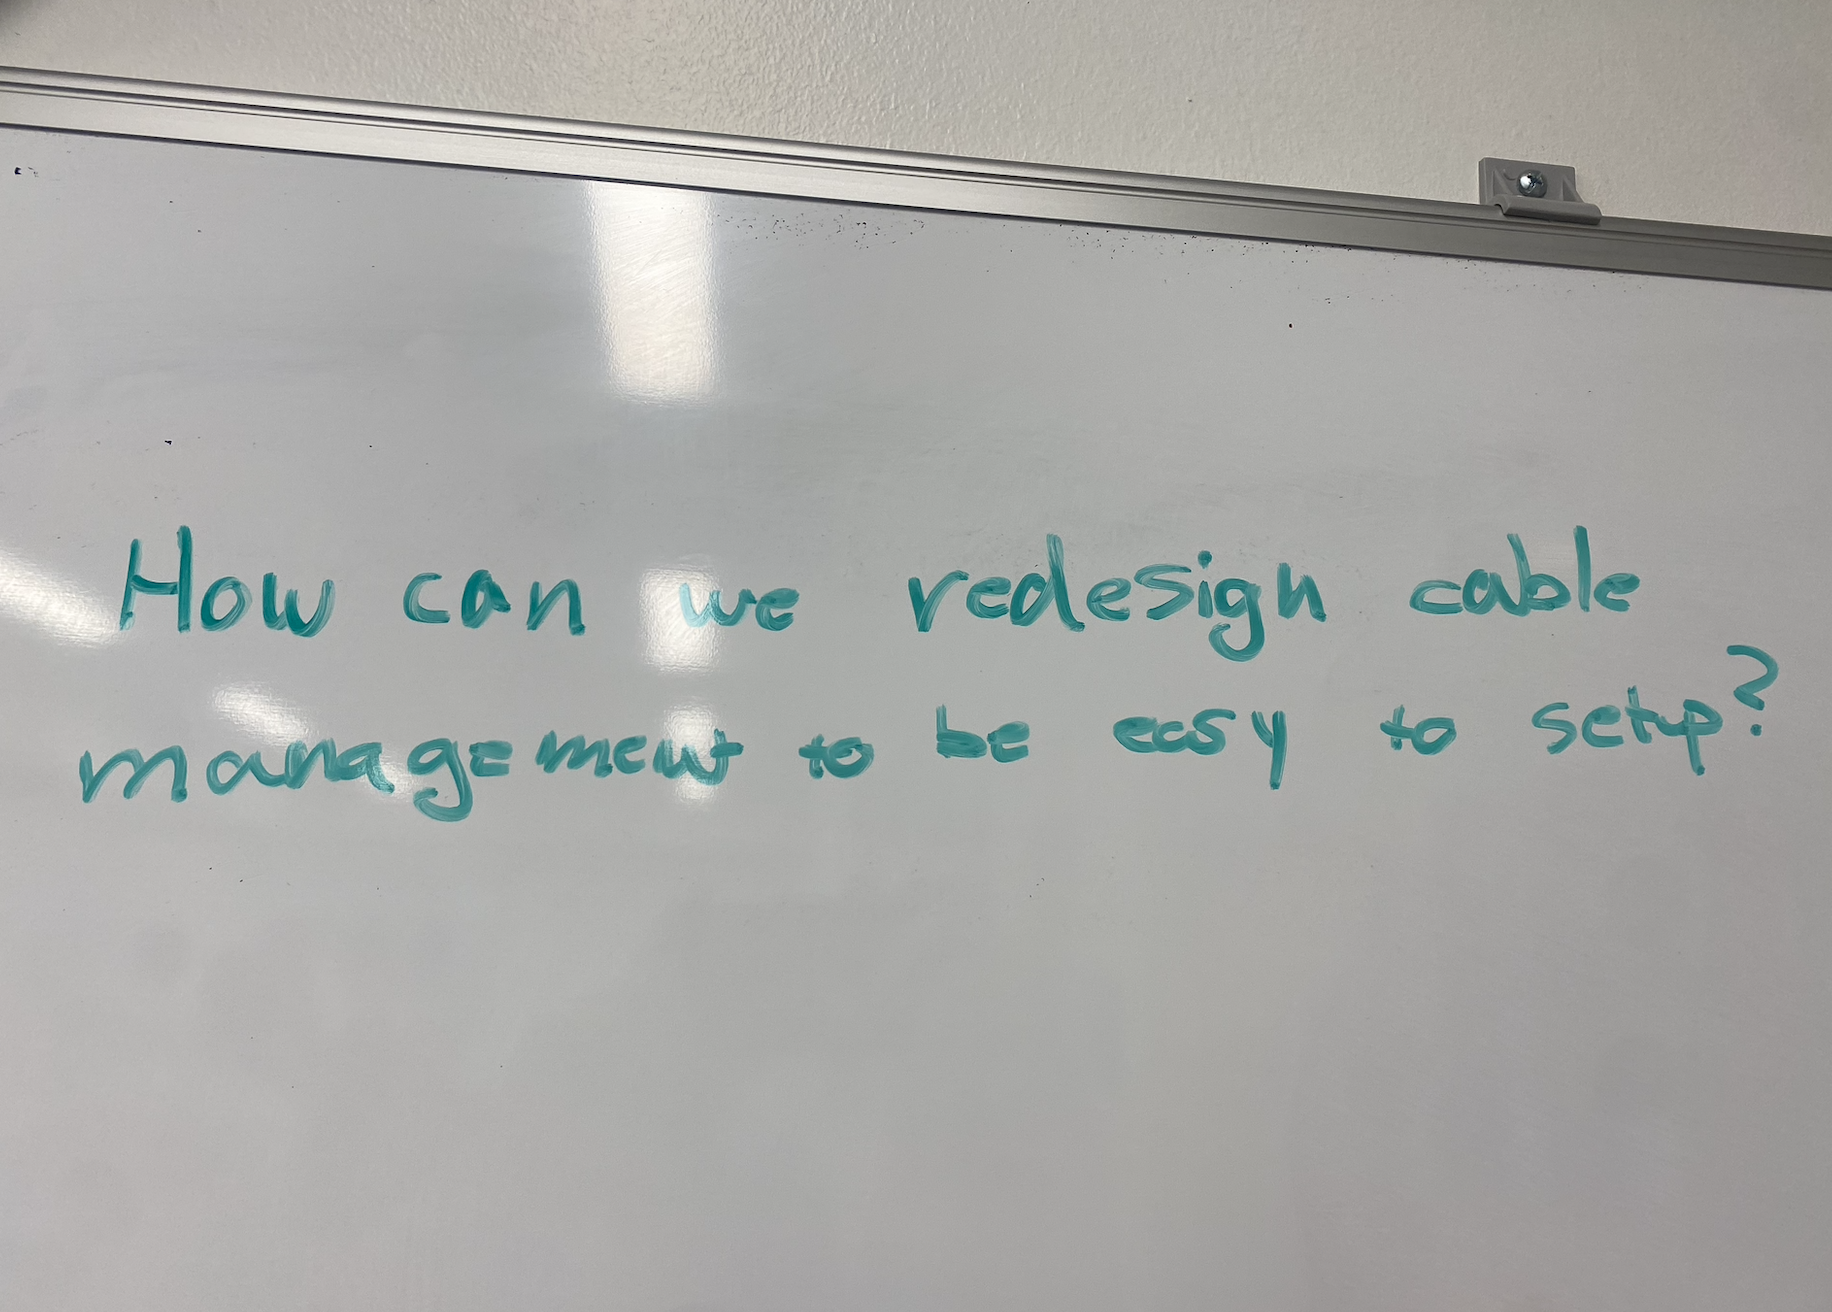 How can we redesign cable
management to be easy to setup?